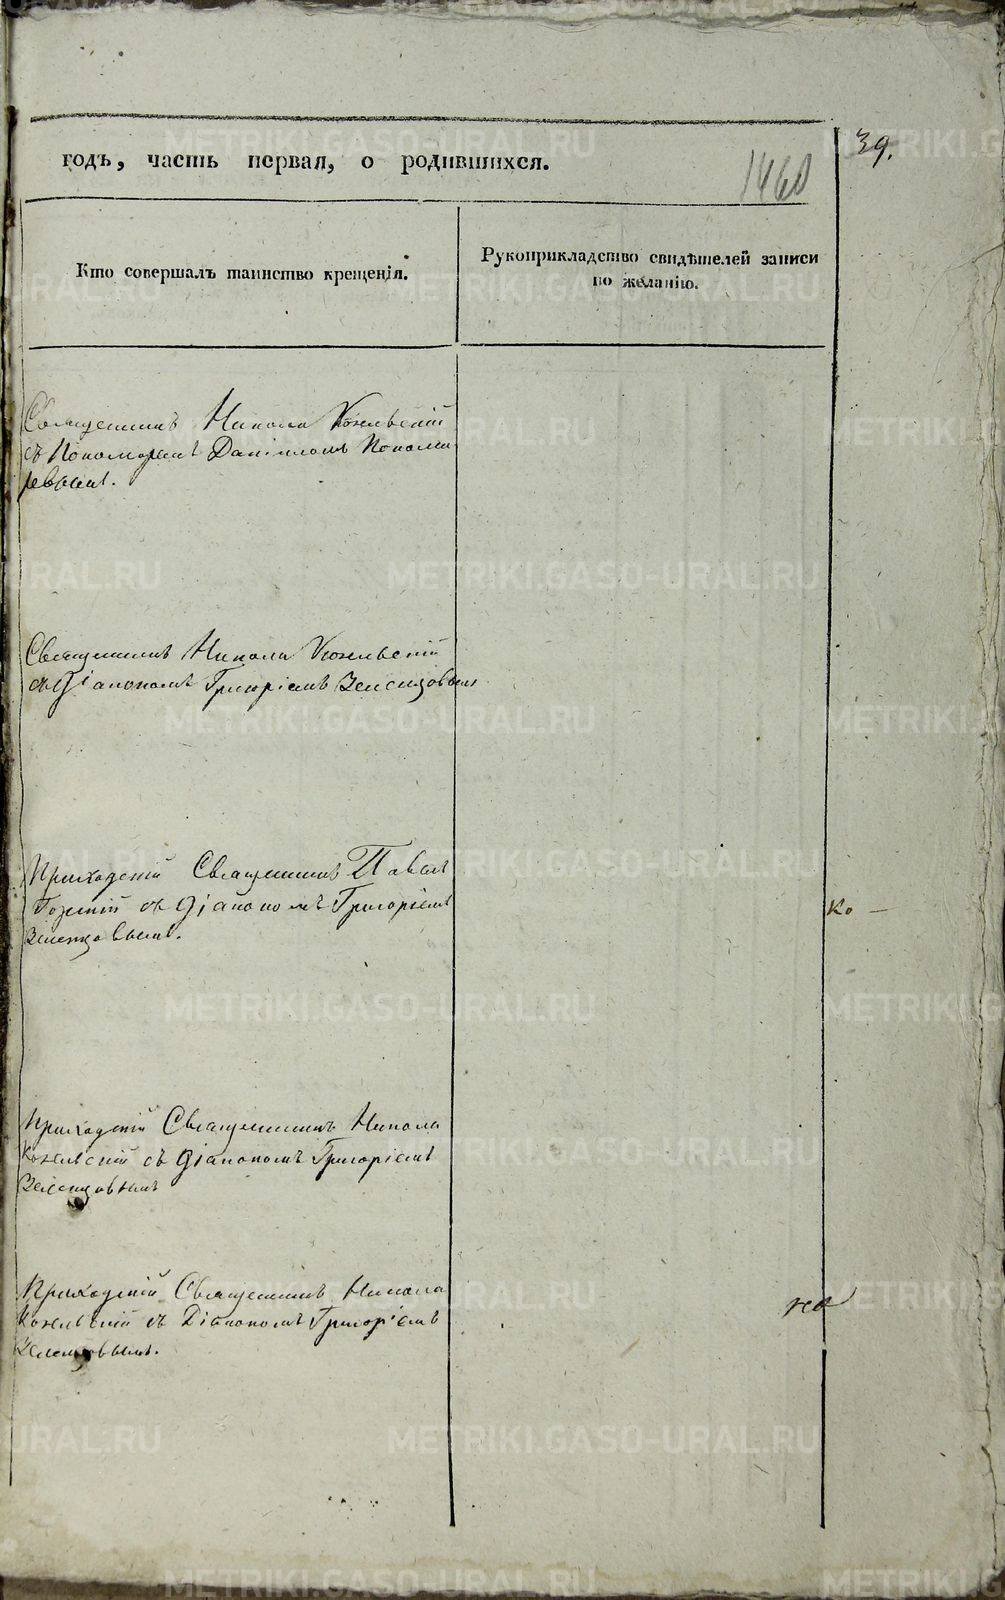 годъ, часть первая, о родившихся.
1460
39.
Кто совершалъ таинство крещенія.
Рукоприкладство свидѣтелей записи
по желанію.
Священникъ Никола Кожевскій
съ Пономаремъ Даніиломъ Понома
ревымъ.
Священникъ Никола Кожевскій
съ Діакономъ Григоріемъ Зеленцовымъ
Приходскій Священникъ Павелъ
съ Діакономъ Григоріемъ
Зеленцовымъ.
Ко —
Приходскій Священникъ Никола
Кожевскій съ Діакономъ Григоріемъ
Зеленцовымъ
Приходскій Священникъ Никола
Кожевскій съ Діакономъ Григоріемъ
Зеленцовымъ.
METRIKI.GASO-URAL.RU